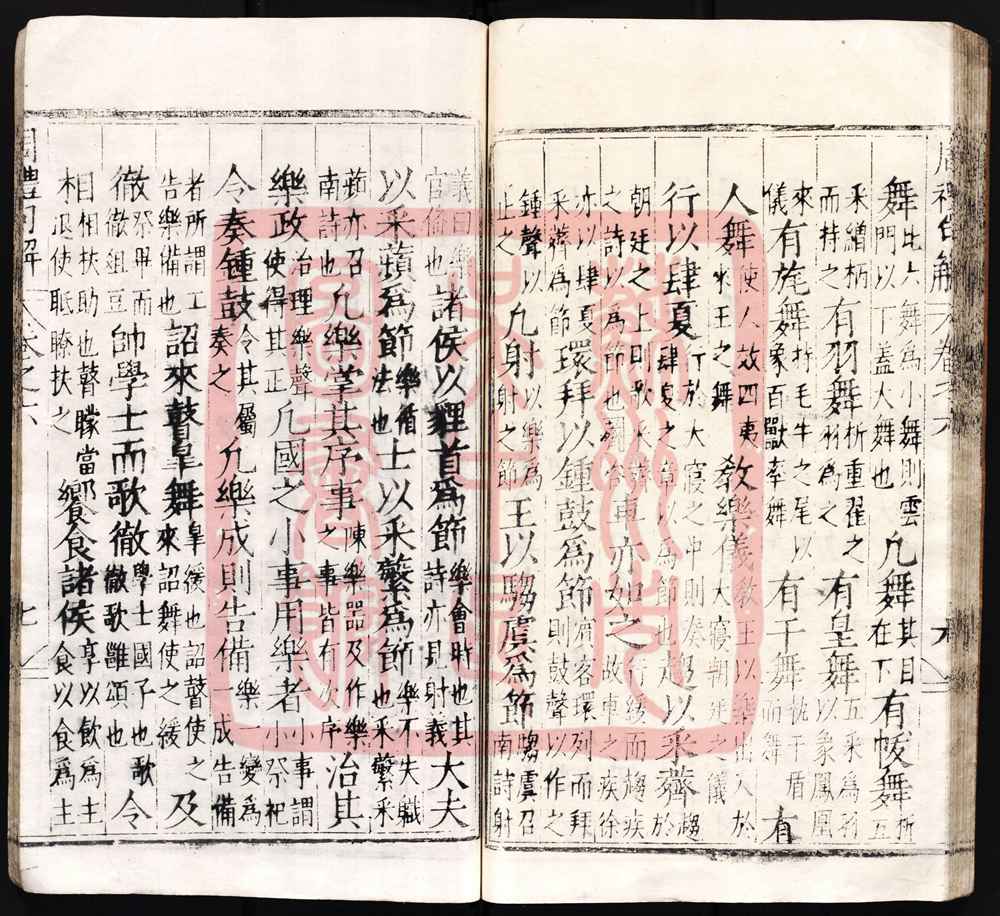 周禮句解 卷之六
舞此六舞為小舞則雲門以下蓋大舞也凡舞其目在下有帗舞析五
采繒柄而持之有羽舞析重翟之羽為之有皇舞五采為羽以象鳳凰
來儀有旄舞析毛牛之尾以象百獸率舞有干舞執干盾而舞有
人舞使人效四夷來王之舞教樂儀教王以樂出入於大寢朝廷之儀
行以肆夏行於大寢之中則奏肆夏之章以為節也趨以采薺趨於
朝廷之上則歌采薺之詩以為節也車亦如之行緩而趨疾故車之疾徐
亦以肆夏采薺為節環拜以鍾鼓為節賓客環列而拜則鼓聲以作之
鍾聲以止之凡射以樂為射之節王以騶虞為節騶虞召南詩射
義曰樂官備也諸侯以貍首為節樂會時也其詩亦見射義大夫
以采蘋為節樂循法也士以采蘩為節樂不失職也采蘩采
蘋亦召南詩也凡樂掌其序事陳樂器及作樂之事皆有次序治其
樂政治理樂聲使得其正凡國之小事用樂者小事謂小祭祀
令奏鍾鼓令其屬奏之凡樂成則告備樂一變為一成告備
者所謂工告樂備也詔來鼓皐舞皐緩也詔瞽使之來詔舞使之緩及
徹祭畢而徹俎豆帥學士而歌徹學士國子也歌徹歌雝頌也令
相相扶助也瞽矇當使眂瞭扶之饗食諸侯享以飲為主食以食為主
周禮句解 卷之六 七